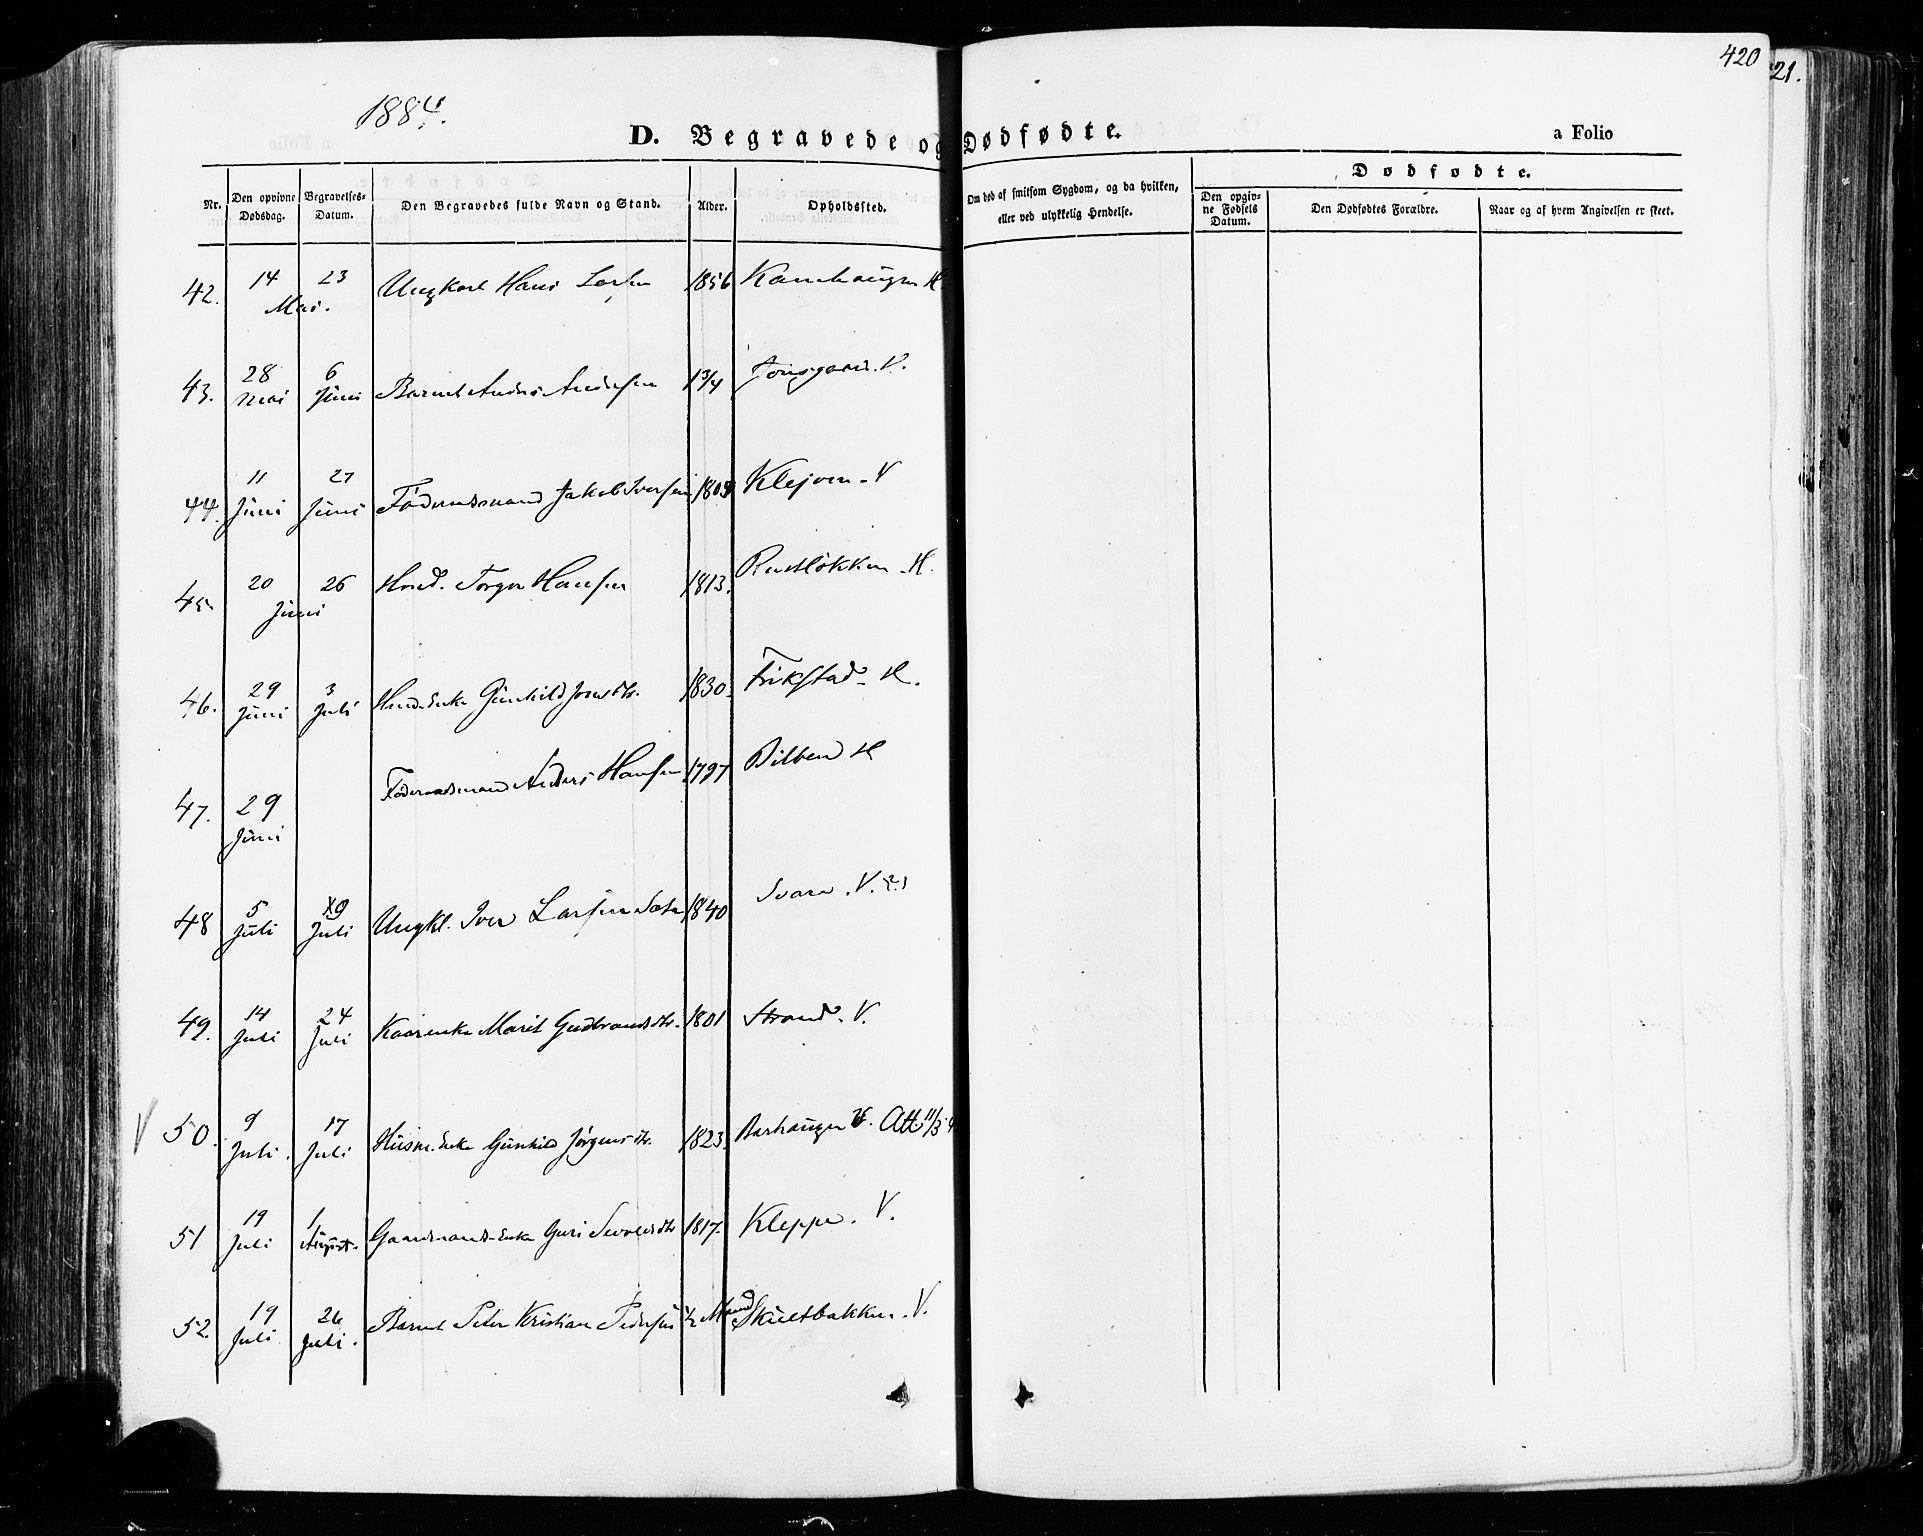 420
21.
1884.
D. Begravede og Dødfødte.
a Folio
Nr.
Den opgivne Dødsdag.
Begravelses-Datum.
Den Begravedes fulde Navn og Stand.
Alder.
Opholdssted.
Om død af smitsom Sygdom, og da hvilken, eller ved ulykkelig Hendelse.
Dødfødte.
Den opgivne Fødsels Datum.
Den Dødfødtes Forældre.
Naar og af hvem Angivelsen er skeet.
42. 14 23 Mai. Ungkarl Hans Larsen 1856 H.
43. 28 Mai 6 Juni Barnet Anders Andersen 1 3/4 Jonsgaard. V.
44. 11 Juni 27 Juni Föderaadsmand Jakob Iversen Klejven. V
45. 20 26 Juni Huusm. Torger Hansen 1813. Rustløkken. H.
46. 29 Juni 3 Juli Enke Gunhild 1830. Frikstad. H.
47. 29 Juni Föderaadsmand Anders Hansen 1797 Bilben H
48 5 Juli 19 Juli Ungkl. Iver Larsen 1840 V.
49. 14 Juli 24 Juli Kaarenke Marit Gudbrandsdtr. 1801 Strand. V.
V 50. 9 Juli. 17 Juli Husm. Enke Gunhild Jørgensdtr. 1823 Att 11/5
51 19 Juli 1 August. Gaardmands-Enke Guri 1817. Kleppe. V.
52. 19 Juli 26 Juli. Barnet Peter Kristian Pedersen 1/2 Maand Skultbakken. V.